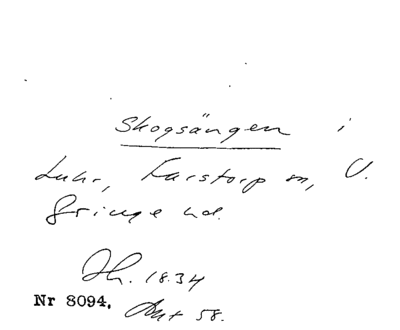 Skogsängen i
Luhr, Farstorp sn, V.
Göinge hd.
Jh. 1834
Nr 8094. Avt 58.